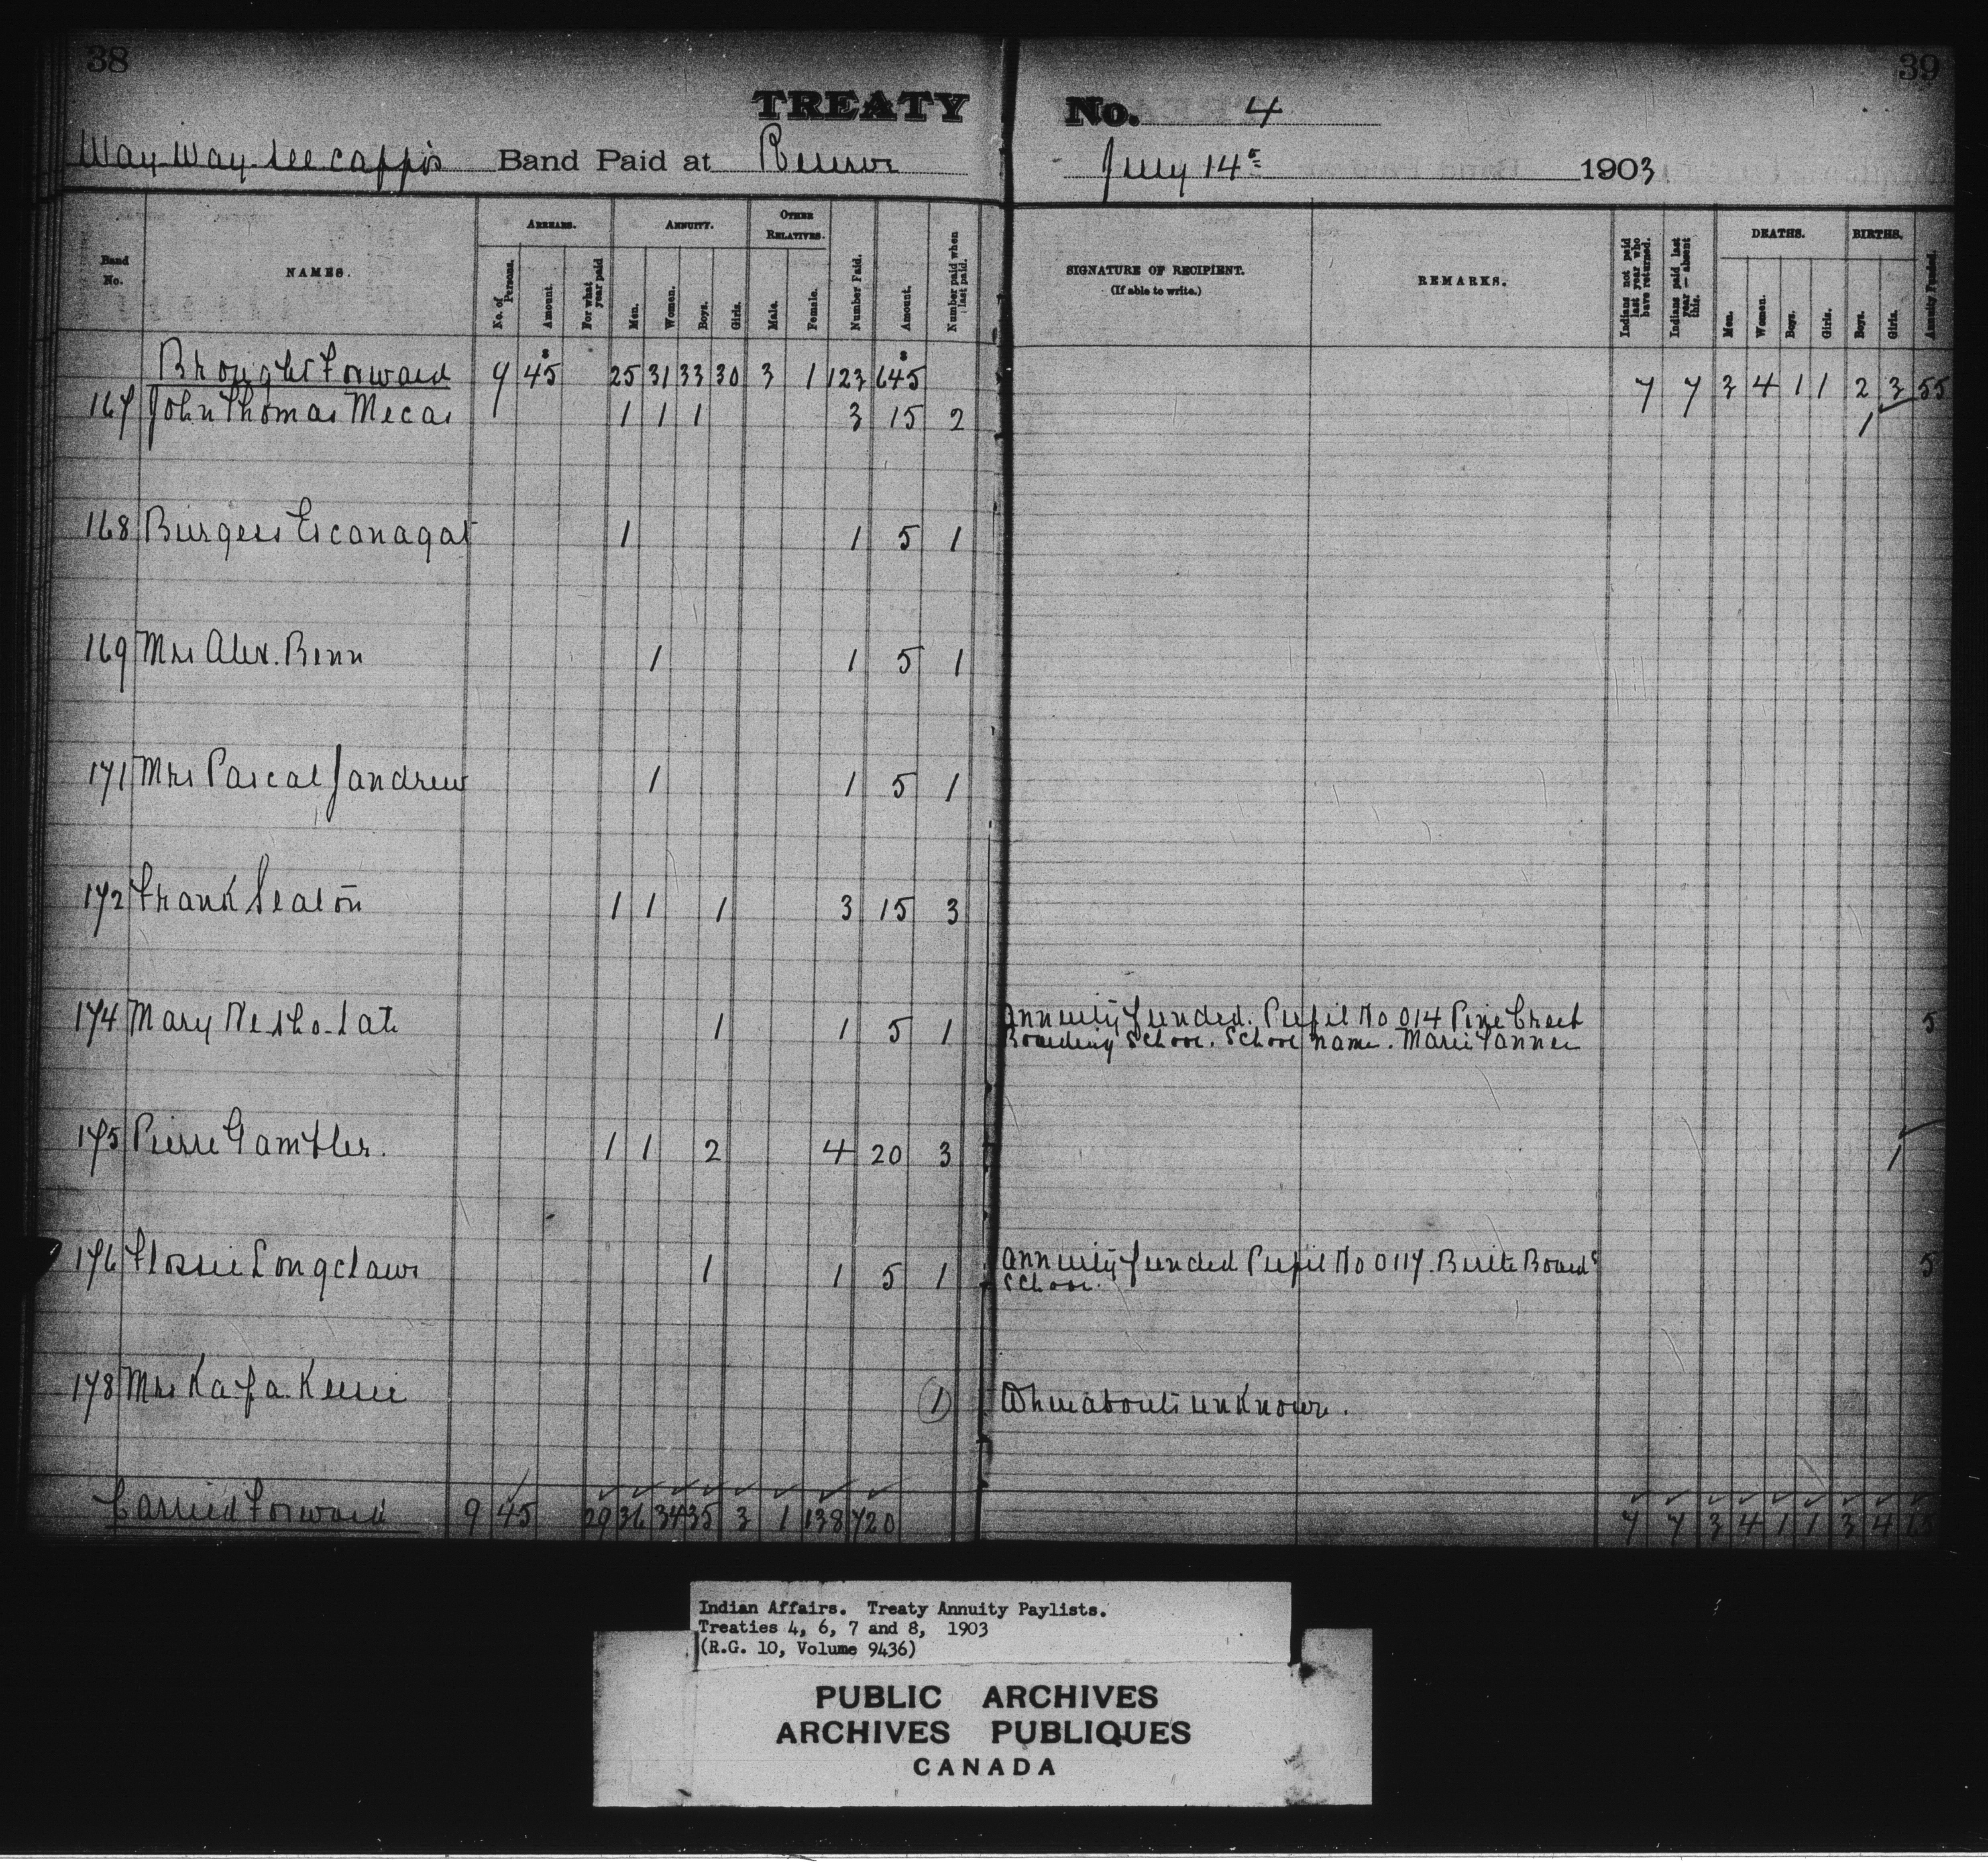 38
39
TREATY No. 4
Way-Way-see cappo's Band Paid at Reserve July 14th 1903
Band No.
NAMES.
ARREARS.
No. of Persons.
Amount.
For what year paid
ANNUITY.
Men.
Women.
Boys.
Girls.
OTHER RELATIVES.
Male.
Female.
Number Paid.
Amount.
Number paid when last paid.
SIGNATURE OF RECIPIENT.
(If able to write.)
REMARKS.
Indians not paid last year who have returned.
Indians paid last year—absent this.
DEATHS.
Men.
Women.
Boys.
Girls.
BIRTHS.
Boys.
Girls.
Annuity Funded.
Brought Forward 9 45 25 31 33 30 3 1 123 645 7 7 3 4 1 1 2 3 55
167 John Thomas Mecas 1 1 1 3 15 2 1
168 Burgess 1 1 5 1
169 Mrs Alex. Benn 1 1 5 1
171 Mrs Pascal Jandrew 1 1 5 1
172 Frank Seaton 1 1 1 3 15 3
174 Mary 1 1 5 1 Annuity funded. Pupil No 014 Pine Creek 5
Boarding School. School name. Marie Tanner
175 Pierre Gambler. 1 1 2 4 20 3 1
176 Flossie Longclaws 1 1 5 1 Annuity funded Pupil No 0117. Birtle Board^g 5
School.
178 Mrs 1 Whereabouts unknown.
Carried Forward 9 45 29 36 34 35 3 1 138 720 7 7 3 4 1 1 3 4
Indian Affairs. Treaty Annuity Paylists.
Treaties 4, 6, 7 and 8, 1903
(R.G. 10, Volume 9436)
PUBLIC ARCHIVES
ARCHIVES PUBLIQUES
CANADA